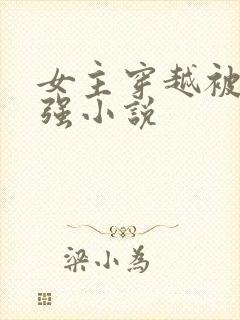 女主穿越被
强小说
梁小为